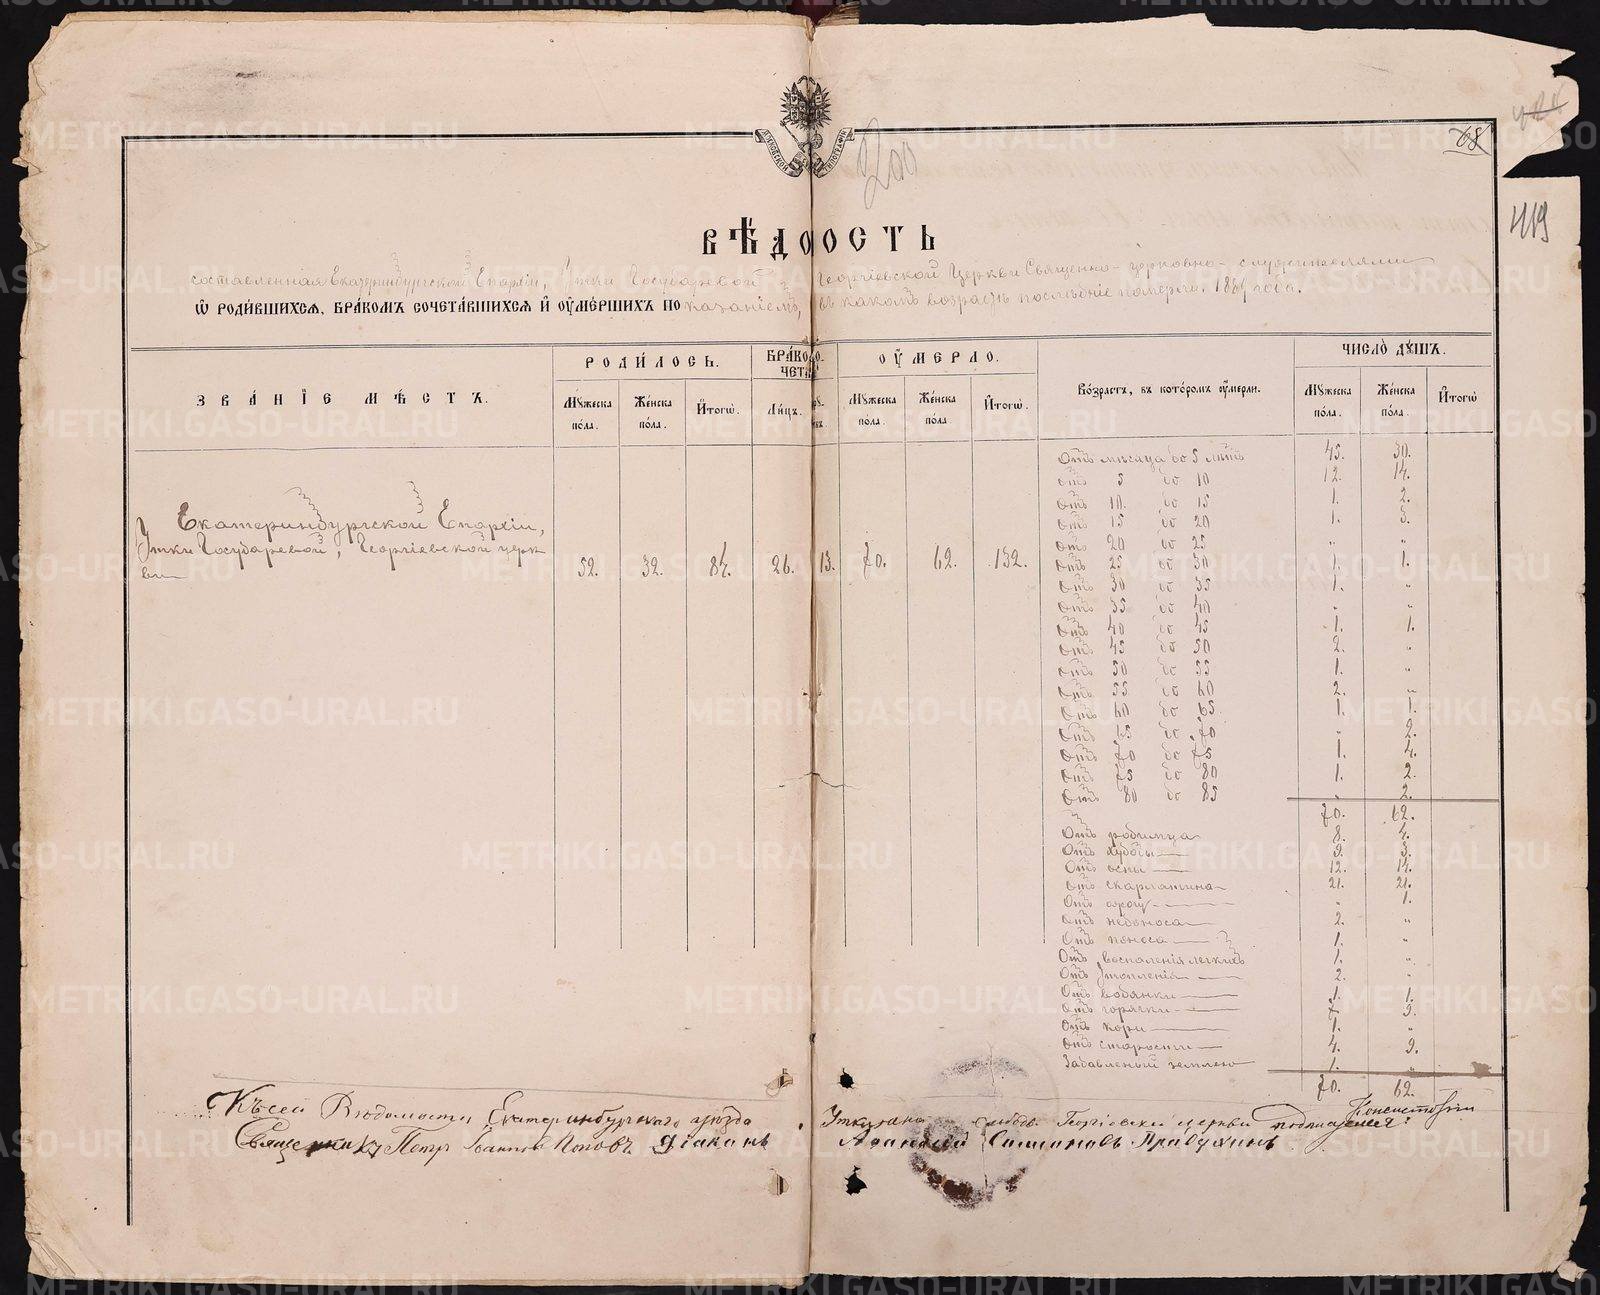 200
68
419
ВѢДОМОСТЬ
составленная Екатеринбургской Епархіи, Утки Государевой Георгіевской Церкви Священно-церковно-служителями
Ѿ РОДИ́ВШИХСЯ, БРА́КОМЪ СОЧЕТА́ВШИХСЯ И҆ ОУ҆МЕ́РШИХЪ ПО казаніемъ, въ какомъ возрастѣ послѣдніе померли. года.
ЗВА́НІЕ МѢ́СТЪ.
РОДИ́ЛОСЬ.
Мꙋ́жеска по́ла.
Же́нска по́ла.
И҆тогѡ̀.
БРАКОСОЧЕТ
Ли́цъ.
ОУ҆́МЕРЛО.
Мꙋ́жеска по́ла.
Же́нска по́ла.
И҆тогѡ̀.
Во́зрастъ, въ кото́ромъ оу҆́мерли.
ЧИСЛО̀ ДꙊШЪ.
Мꙋ́жеска по́ла.
Же́нска по́ла.
И҆тогѡ̀
Екатеринбургской Епархіи,
Утки Государевой, Георгіевской церк
ви
52. 32. 84. 26. 13. 70. 62. 132.
Отъ мѣсяца до 5 лѣтъ 45. 30.
Отъ 5 до 10 12. 14.
Отъ 10. до 15 1. 2.
Отъ 15 до 20 1. 3.
Отъ 20 до 25 " "
Отъ 25 до 30 1. 1.
Отъ 30 до 35 1. "
Отъ 35 до 40 " "
Отъ 40 до 45 1. 1.
Отъ 45 до 50 2. "
Отъ 50 до 55 1. "
Отъ 55 до 60 2. "
Отъ 60 до 65 1. 1.
Отъ 65 до 70 " 2.
Отъ 70 до 75 1. 4.
Отъ 75 до 80 1. 2.
Отъ 80 до 85 " 2.
70. 62.
Отъ родимца 8. 4.
Отъ 9. 3.
Отъ оспы 12. 14.
Отъ скарлатина 21. 21.
Отъ " 1.
Отъ недоноса 2. "
Отъ поноса 1. "
Отъ воспаленія легкихъ 1. "
Отъ утопленія 2. "
Отъ водянки 1. 1.
Отъ горячки 7. 9.
Отъ кори 1. "
Отъ старости 4. 9.
Задавленый землею 1. "
70. 62.
Къ сей Вѣдомости, Екатеринбургскаго уѣзда Георгіевской церкви подписуемся:
Священникъ Петръ Іоанновъ Поповъ. Діаконъ Аѳанасій Правдухинъ
METRIKI.GASO-URAL.RU